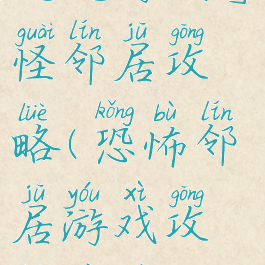 guài lín jū gōng
怪邻居攻
lüè kǒng bù lín
略(恐怖邻
jū yóu xì gōng
居游戏攻